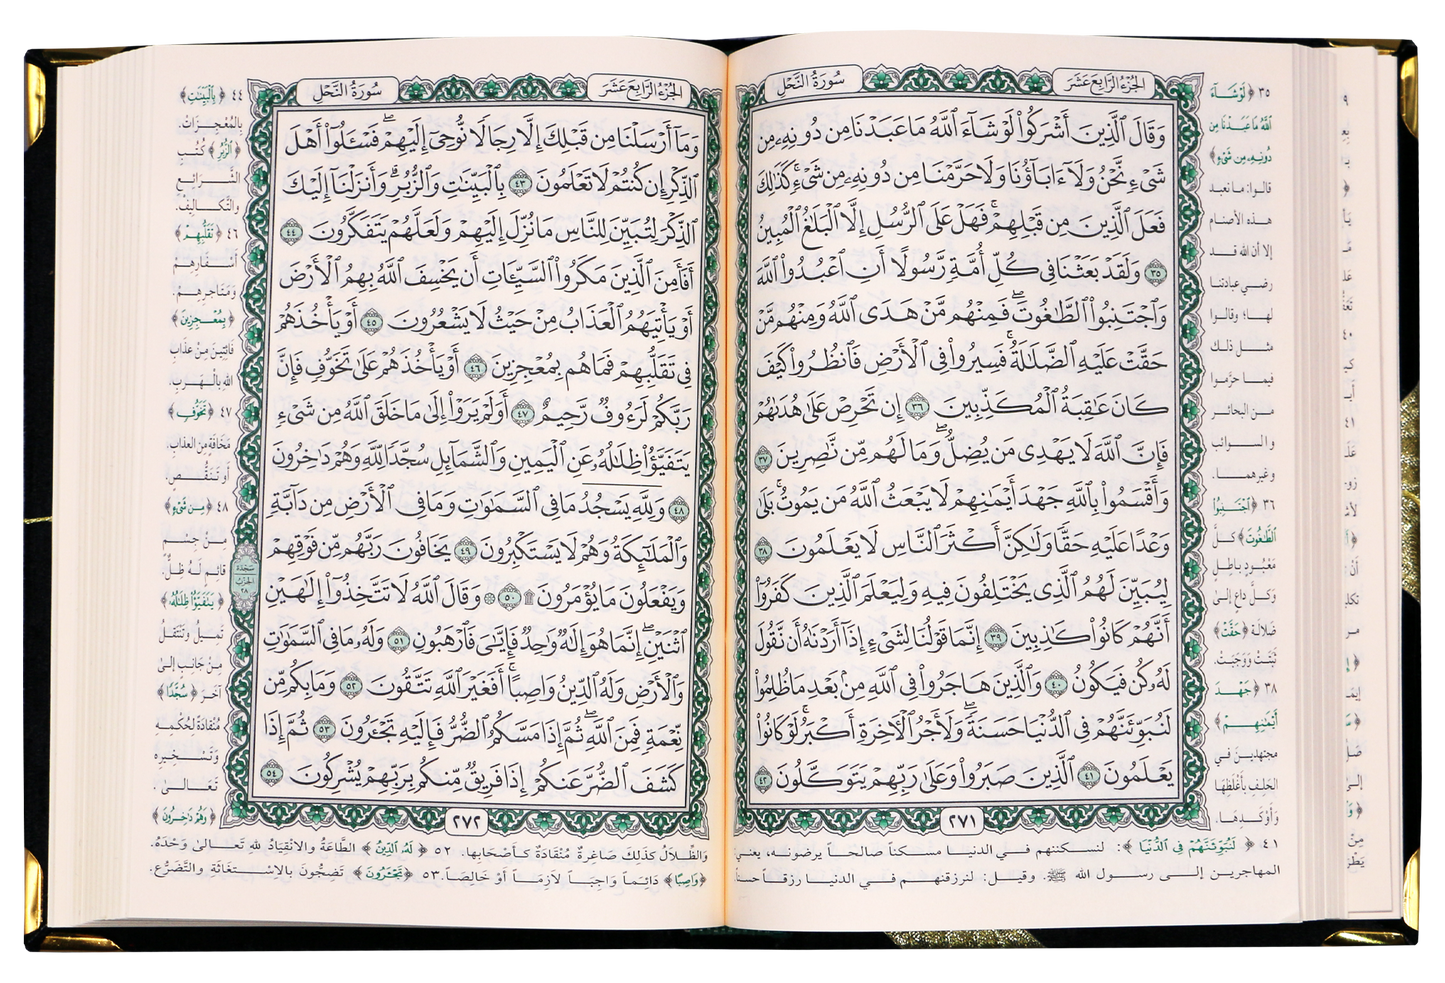 الجُزْءُ الرَّابِعَ عَشَرَ
سُورَةُ النَّحْلِ
وَقَالَ ٱلَّذِينَ أَشْرَكُوا۟ لَوْ شَآءَ ٱللَّهُ مَا عَبَدْنَا مِن دُونِهِۦ مِن
شَىْءٍ نَّحْنُ وَلَآ ءَابَآؤُنَا وَلَا حَرَّمْنَا مِن دُونِهِۦ مِن شَىْءٍ ۚ كَذَٰلِكَ
فَعَلَ ٱلَّذِينَ مِن قَبْلِهِمْ ۚ فَهَلْ عَلَى ٱلرُّسُلِ إِلَّا ٱلْبَلَٰغُ ٱلْمُبِينُ
٣٥ وَلَقَدْ بَعَثْنَا فِى كُلِّ أُمَّةٍ رَّسُولًا أَنِ ٱعْبُدُوا۟ ٱللَّهَ
وَٱجْتَنِبُوا۟ ٱلطَّٰغُوتَ ۖ فَمِنْهُم مَّنْ هَدَى ٱللَّهُ وَمِنْهُم مَّنْ
حَقَّتْ عَلَيْهِ ٱلضَّلَٰلَةُ ۚ فَسِيرُوا۟ فِى ٱلْأَرْضِ فَٱنظُرُوا۟ كَيْفَ
كَانَ عَٰقِبَةُ ٱلْمُكَذِّبِينَ ٣٦ إِن تَحْرِصْ عَلَىٰ هُدَىٰهُمْ
فَإِنَّ ٱللَّهَ لَا يَهْدِى مَن يُضِلُّ ۖ وَمَا لَهُم مِّن نَّٰصِرِينَ ٣٧
وَأَقْسَمُوا۟ بِٱللَّهِ جَهْدَ أَيْمَٰنِهِمْ ۙ لَا يَبْعَثُ ٱللَّهُ مَن يَمُوتُ ۚ بَلَىٰ
وَعْدًا عَلَيْهِ حَقًّا وَلَٰكِنَّ أَكْثَرَ ٱلنَّاسِ لَا يَعْلَمُونَ ٣٨
لِيُبَيِّنَ لَهُمُ ٱلَّذِى يَخْتَلِفُونَ فِيهِ وَلِيَعْلَمَ ٱلَّذِينَ كَفَرُوٓا۟
أَنَّهُمْ كَانُوا۟ كَٰذِبِينَ ٣٩ إِنَّمَا قَوْلُنَا لِشَىْءٍ إِذَآ أَرَدْنَٰهُ أَن نَّقُولَ
لَهُۥ كُن فَيَكُونُ ٤٠ وَٱلَّذِينَ هَاجَرُوا۟ فِى ٱللَّهِ مِنۢ بَعْدِ مَا ظُلِمُوا۟
لَنُبَوِّئَنَّهُمْ فِى ٱلدُّنْيَا حَسَنَةً ۖ وَلَأَجْرُ ٱلْءَاخِرَةِ أَكْبَرُ ۚ لَوْ كَانُوا۟
يَعْلَمُونَ ٤١ ٱلَّذِينَ صَبَرُوا۟ وَعَلَىٰ رَبِّهِمْ يَتَوَكَّلُونَ ٤٢
٢٧١
٣٥ ﴿لَوْ شَآءَ
ٱللَّهُ مَا عَبَدْنَا مِن
دُونِهِۦ مِن شَىْءٍ﴾
قالوا: ما نعبد
هذه الأصنام
إلا أن الله قد
رضي عبادتنا
لها؛ وقالوا
مثل ذلك
فيما حرّموا
من البحائر
والسوائب
وغيرهما.
٣٦ ﴿ٱجْتَنِبُوا۟
ٱلطَّٰغُوتَ﴾ كلَّ
مَعْبُودٍ باطلٍ
وكلَّ داعٍ إلىٰ
ضلالة ﴿حَقَّتْ﴾
ثَبَتَتْ وَوَجَبَتْ.
٣٨ ﴿جَهْدَ
أَيْمَٰنِهِمْ﴾
مجتهدين في
الحَلِفِ بأَغْلَظِهَا
وَأَوْكَدِهَا.
٤١ ﴿لَنُبَوِّئَنَّهُمْ فِى ٱلدُّنْيَا﴾: لنسكننهم في الدنيا مسكناً صالحاً يرضونه، يعني
المهاجرين إلى رسول الله ﷺ. وقيل: لنرزقنهم في الدنيا رزقاً حسناً
الجُزْءُ الرَّابِعَ عَشَرَ
سُورَةُ النَّحْلِ
وَمَآ أَرْسَلْنَا مِن قَبْلِكَ إِلَّا رِجَالًا نُّوحِىٓ إِلَيْهِمْ ۖ فَسْـَٔلُوٓا۟ أَهْلَ
ٱلذِّكْرِ إِن كُنتُمْ لَا تَعْلَمُونَ ٤٣ بِٱلْبَيِّنَٰتِ وَٱلزُّبُرِ ۗ وَأَنزَلْنَآ إِلَيْكَ
ٱلذِّكْرَ لِتُبَيِّنَ لِلنَّاسِ مَا نُزِّلَ إِلَيْهِمْ وَلَعَلَّهُمْ يَتَفَكَّرُونَ ٤٤
أَفَأَمِنَ ٱلَّذِينَ مَكَرُوا۟ ٱلسَّيِّـَٔاتِ أَن يَخْسِفَ ٱللَّهُ بِهِمُ ٱلْأَرْضَ
أَوْ يَأْتِيَهُمُ ٱلْعَذَابُ مِنْ حَيْثُ لَا يَشْعُرُونَ ٤٥ أَوْ يَأْخُذَهُمْ
فِى تَقَلُّبِهِمْ فَمَا هُم بِمُعْجِزِينَ ٤٦ أَوْ يَأْخُذَهُمْ عَلَىٰ تَخَوُّفٍ فَإِنَّ
رَبَّكُمْ لَرَءُوفٌ رَّحِيمٌ ٤٧ أَوَلَمْ يَرَوْا۟ إِلَىٰ مَا خَلَقَ ٱللَّهُ مِن شَىْءٍ
يَتَفَيَّؤُا۟ ظِلَٰلُهُۥ عَنِ ٱلْيَمِينِ وَٱلشَّمَآئِلِ سُجَّدًا لِّلَّهِ وَهُمْ دَٰخِرُونَ
٤٨ وَلِلَّهِ يَسْجُدُ مَا فِى ٱلسَّمَٰوَٰتِ وَمَا فِى ٱلْأَرْضِ مِن دَآبَّةٍ
وَٱلْمَلَٰٓئِكَةُ وَهُمْ لَا يَسْتَكْبِرُونَ ٤٩ يَخَافُونَ رَبَّهُم مِّن فَوْقِهِمْ
وَيَفْعَلُونَ مَا يُؤْمَرُونَ ۩ ٥٠ ۞ وَقَالَ ٱللَّهُ لَا تَتَّخِذُوٓا۟ إِلَٰهَيْنِ
ٱثْنَيْنِ ۖ إِنَّمَا هُوَ إِلَٰهٌ وَٰحِدٌ ۖ فَإِيَّٰىَ فَٱرْهَبُونِ ٥١ وَلَهُۥ مَا فِى ٱلسَّمَٰوَٰتِ
وَٱلْأَرْضِ وَلَهُ ٱلدِّينُ وَاصِبًا ۚ أَفَغَيْرَ ٱللَّهِ تَتَّقُونَ ٥٢ وَمَا بِكُم مِّن
نِّعْمَةٍ فَمِنَ ٱللَّهِ ۖ ثُمَّ إِذَا مَسَّكُمُ ٱلضُّرُّ فَإِلَيْهِ تَجْـَٔرُونَ ٥٣ ثُمَّ إِذَا
كَشَفَ ٱلضُّرَّ عَنكُمْ إِذَا فَرِيقٌ مِّنكُم بِرَبِّهِمْ يُشْرِكُونَ ٥٤
٢٧٢
٤٤ ﴿بِٱلْبَيِّنَٰتِ﴾
بِالمُعْجِزَاتِ.
﴿ٱلزُّبُرِ﴾ كُتُبِ
الشَّرَائِعِ
والتَّكَالِيفِ.
٤٦ ﴿تَقَلُّبِهِمْ﴾
أَسْفَارِهِمْ
وَمَتَاجِرِهِمْ.
﴿بِمُعْجِزِينَ﴾
فَائِتِينَ مِنْ عَذَابِ
اللهِ بِالْهَرَبِ.
٤٧ ﴿تَخَوُّفٍ﴾
مَخَافَةٍ مِنَ العذابِ،
أو تَنَقُّصٍ.
٤٨ ﴿مِن شَىْءٍ﴾
مِنْ جِسْمٍ
قائِمٍ لَهُ ظِلٌّ.
﴿يَتَفَيَّؤُا۟ ظِلَٰلُهُ﴾
تَمِيلُ وتَنْتَقِلُ
مِنْ جَانِبٍ إلىٰ
آخَرَ ﴿سُجَّدًا﴾
مُنْقَادَةً لحُكْمِهِ
وَتَسْخِيرِهِ
تَعَالىٰ
﴿وَهُمْ دَٰخِرُونَ﴾
وَالظِّلَالُ كَذَلِكَ صَاغِرَةٌ مُنْقَادَةٌ كَأَصْحَابِهَا. ٥٢ ﴿لَهُ ٱلدِّينُ﴾ الطَّاعَةُ والانْقِيَادُ للهِ تَعَالَىٰ وَحْدَهُ.
﴿وَاصِبًا﴾ دَائِماً وَاجِبَاً لَازِمَاً أَوْ خَالِصَاً. ٥٣ ﴿تَجْـَٔرُونَ﴾ تَضِجُّونَ بِالاسْتِغَاثَةِ والتَّضَرُّعِ.